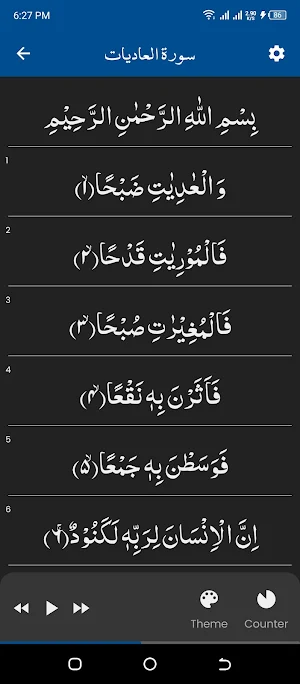 6:27 PM 2.90 K/s 86
سورة العاديات
بِسْمِ اللّٰهِ الرَّحْمٰنِ الرَّحِيْمِ
1
وَالْعٰدِيٰتِ ضَبْحًا(۱)ۙ
2
فَالْمُوْرِيٰتِ قَدْحًا(۲)ۙ
3
فَالْمُغِيْرٰتِ صُبْحًا(۳)ۙ
4
فَاَثَرْنَ بِهٖ نَقْعًا(۴)ۙ
5
فَوَسَطْنَ بِهٖ جَمْعًا(۵)ۙ
6
اِنَّ الْاِنْسَانَ لِرَبِّهٖ لَكَنُوْدٌ(۶)ۚ
Theme Counter